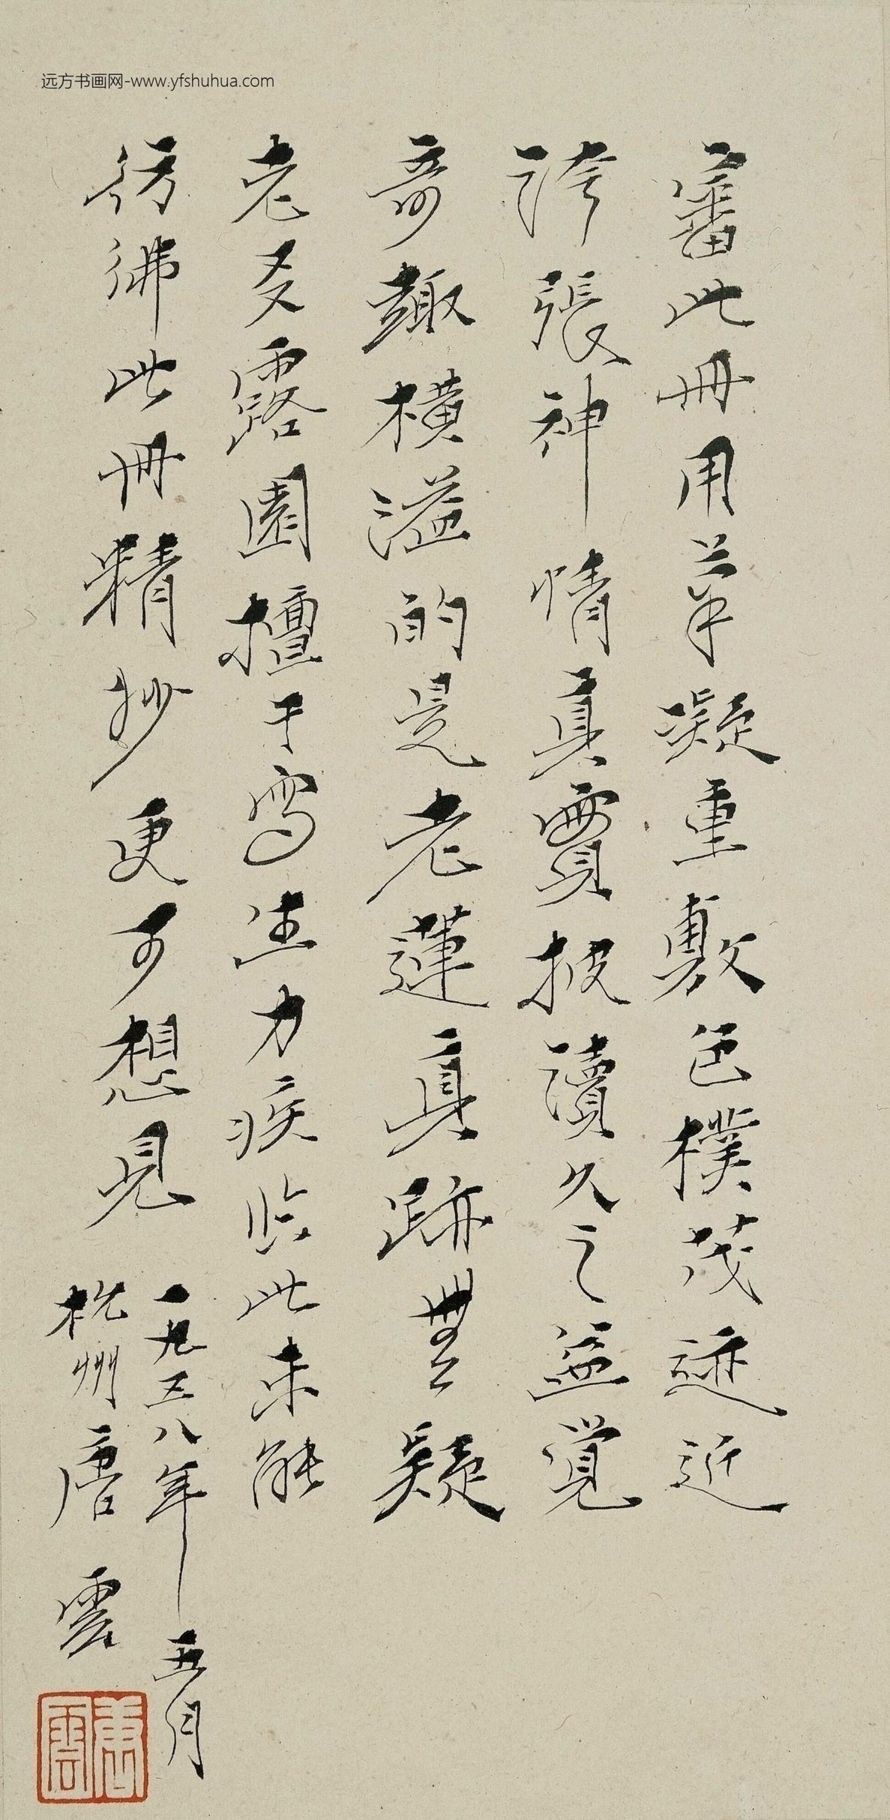 远方书画网-www.yfshuhua.com
審此冊用筆凝重敷色樸茂迹近
誇張神情真實披讀久之益覺
奇趣橫溢的是老蓮真跡無疑
老友露園擅于寫生力疾临此未能
彷彿此冊精抄更可想見
一九五八年五月
杭州唐雲
唐雲